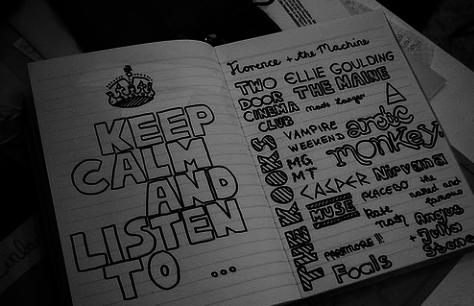 KEEP
CALM
AND
LISTEN
TO ...
Florence + the Machine
TWO
DOOR
CINEMA
CLUB
ELLIE GOULDING
THE MAINE
VAMPIRE
WEEKEND
arctic
monkeys
MG
MT
CASPER
NIRVANA
MUSE
PLACEBO
the
naked and
famous
Kate
Nash
Angus
+ Julia
Stone
PARAMORE !!!
Foals